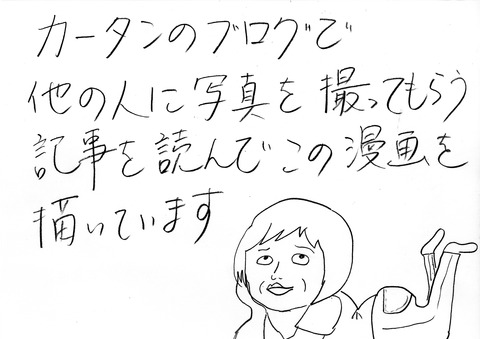 カータンのブログで
他の人に写真を撮ってもらう
記事を読んでこの漫画を
描いています